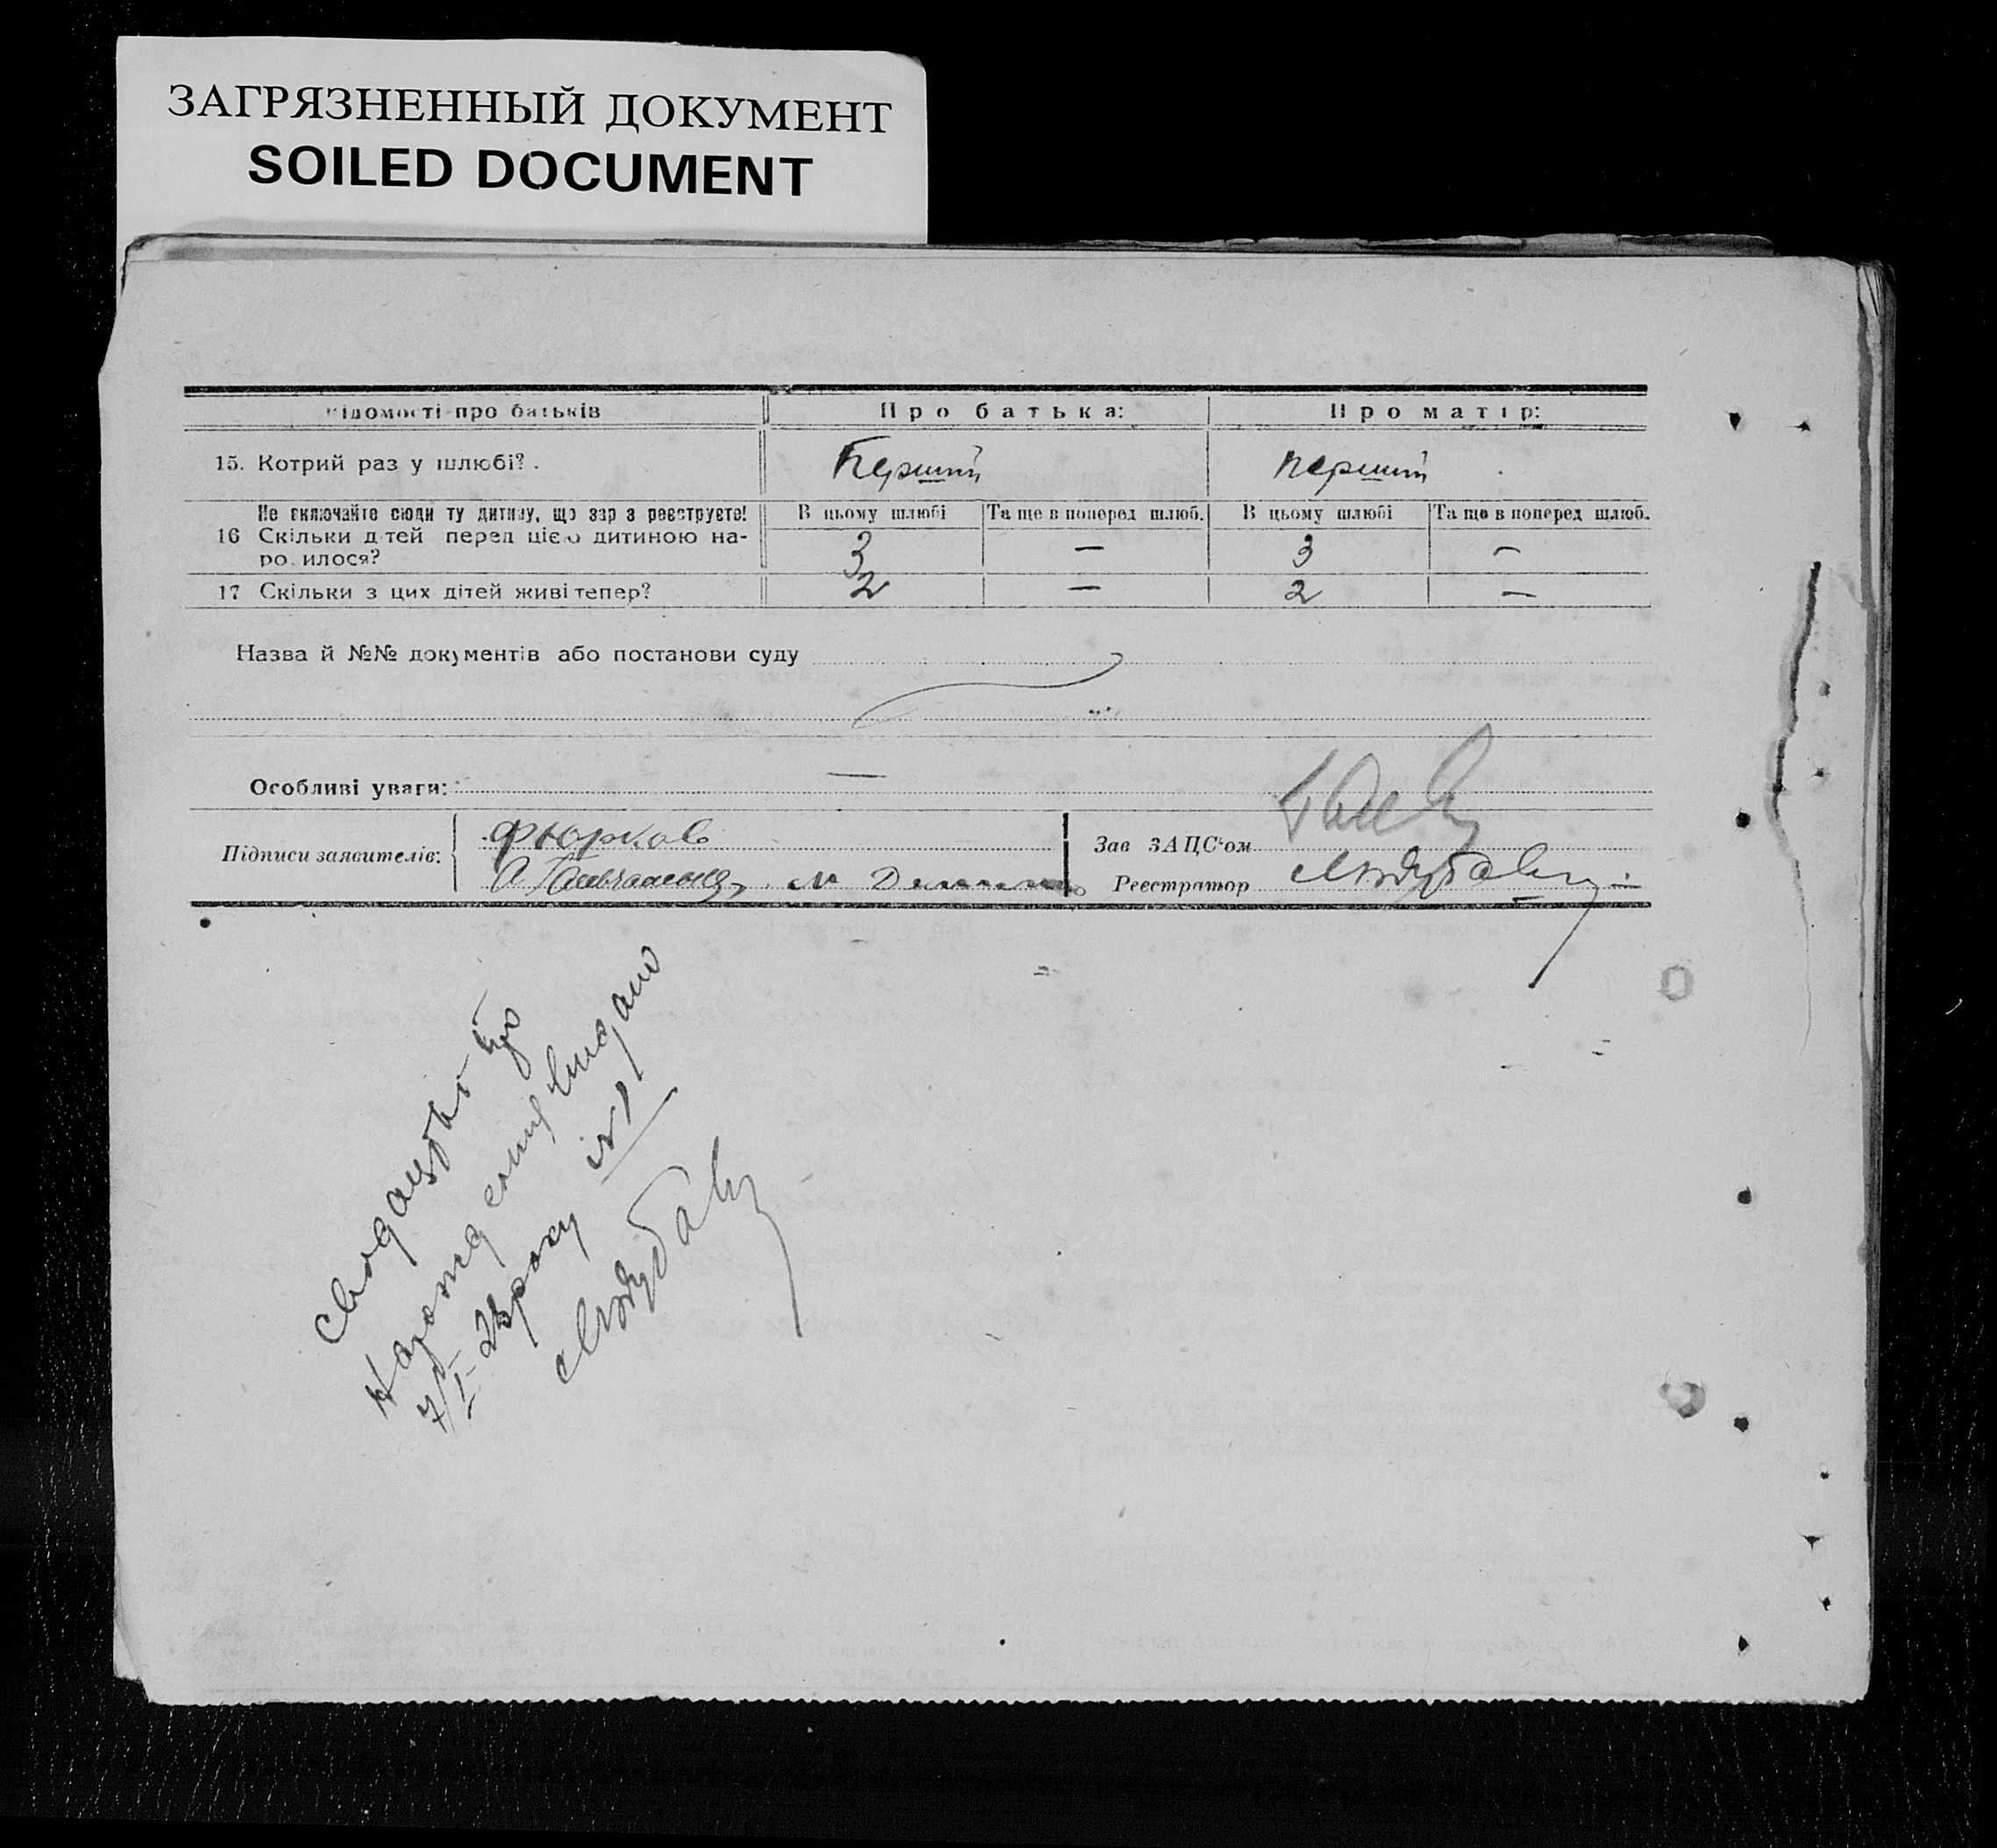 ЗАГРЯЗНЕННЫЙ ДОКУМЕНТ
SOILED DOCUMENT
ідомості про батьків Про батька: Про матір:
15. Котрий раз у шлюбі? . Перший перший
Не включайте сюди ту дитину, що зар з реєструєте! В цьому шлюбі Та ще в поперед шлюб. В цьому шлюбі Та ще в поперед шлюб.
16 Скільки д тей перед цією дитиною на-
ро илося? 3 — 3 —
17 Скільки з цих дітей живі тепер? 2 — 2 —
Назва й №№ документів або постанови суду
Особливі уваги: —
Підписи заявителів: Фюрков Зав ЗАЦС'ом
Реєстратор
Свидацтво про
народження видано
7/I 28 року №1